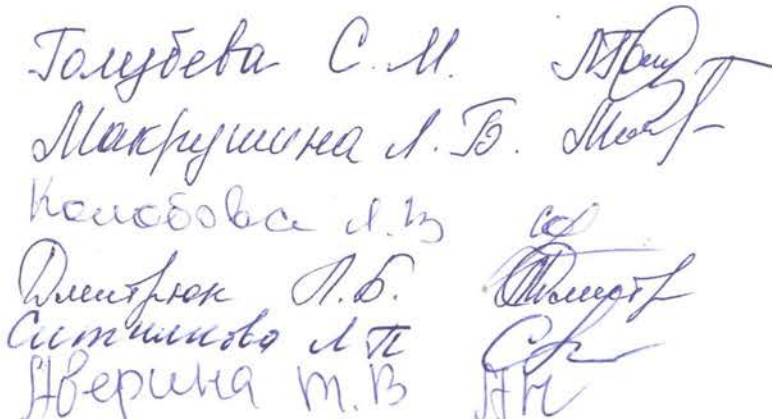 Голубева С. М.
Макрушина Л. В.
Колобова Л. В
Дмитрюк Л. Б.
Л П
Аверина Т. В